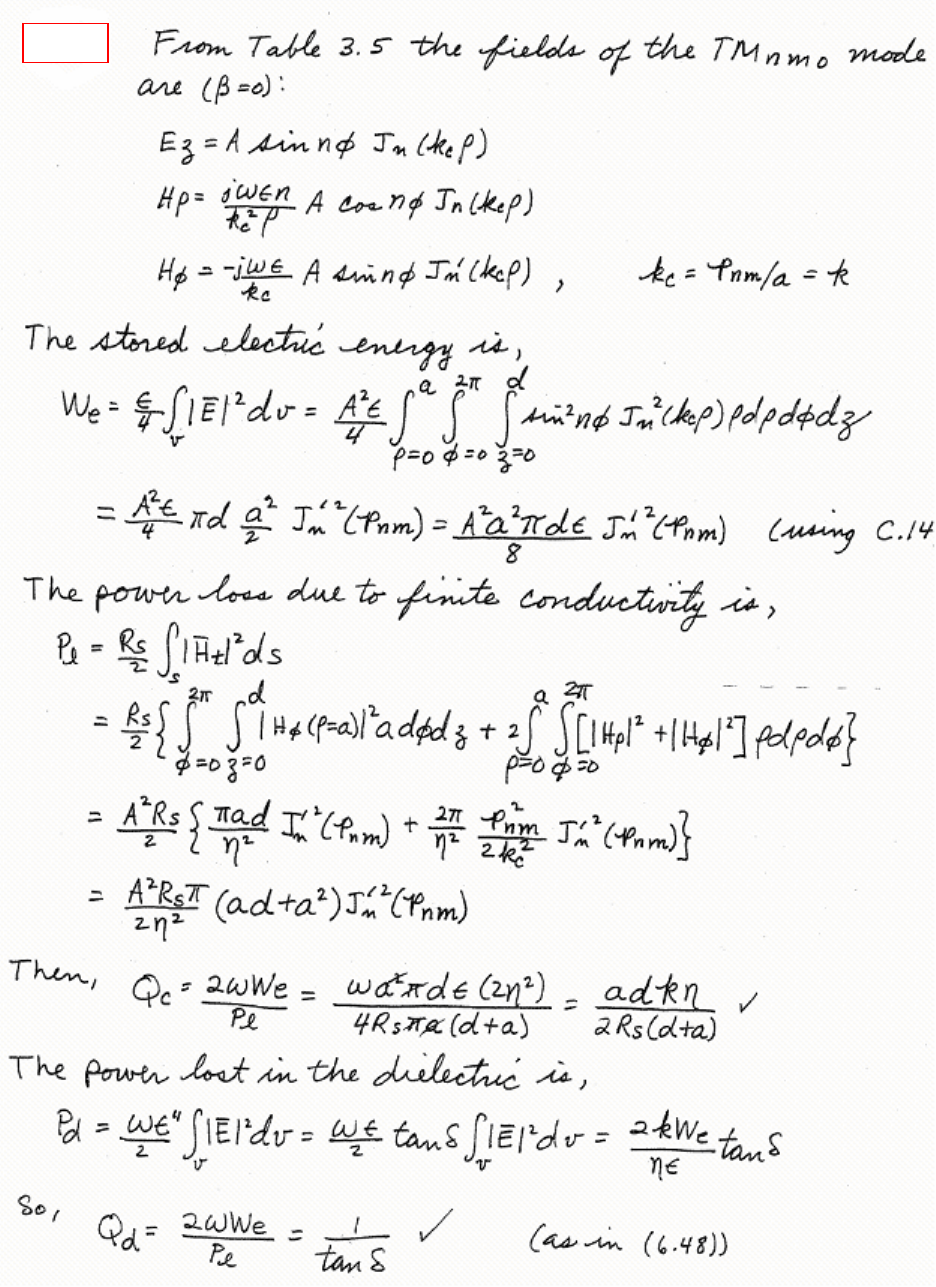 From Table 3.5 the fields of the TMnmo mode
are (β=0):
Ez = A sin nφ Jn (kcρ)
Hρ = jωεn/kc²ρ A cos nφ Jn(kcρ)
Hφ = -jωε/kc A sin nφ Jn'(kcρ) , kc = Pnm/a = k
The stored electric energy is,
We = ε/4 ∫v |Ē|² dv = A²ε/4 ∫ρ=0^a ∫φ=0^2π ∫z=0^d sin²nφ Jn²(kcρ) ρdρdφdz
= A²ε/4 πd a²/2 Jn'²(Pnm) = A²a²πdε/8 Jn'²(Pnm) (using C.14
The power loss due to finite conductivity is,
Pℓ = Rs/2 ∫s |H̄t|² ds
= Rs/2 {∫φ=0^2π ∫z=0^d |Hφ(ρ=a)|² a dφdz + 2∫ρ=0^a ∫φ=0^2π [|Hρ|² + |Hφ|²] ρdρdφ}
= A²Rs/2 {πad/η² Jn'²(Pnm) + 2π/η² Pnm²/2kc² Jn'²(Pnm)}
= A²Rsπ/2η² (ad+a²) Jn'²(Pnm)
Then, Qc = 2ωWe/Pℓ = ωa²πdε(2η²)/4Rsπa(d+a) = adkη/2Rs(d+a) ✓
The power lost in the dielectric is,
Pd = ωε"/2 ∫v |Ē|² dv = ωε/2 tan δ ∫v |Ē|² dv = 2kWe/ηε tan δ
So, Qd = 2ωWe/Pℓ = 1/tan δ ✓ (as in (6.48))